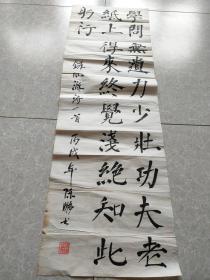 學問無遺力少壯功夫老
紙上得來終覺淺絕知此
躬行
錄陸游詩一首 丙戌年 陳 书